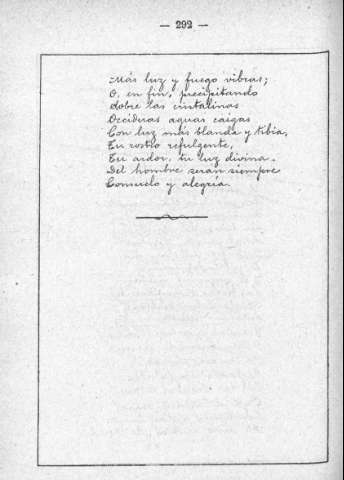 — 292 —
Más luz y fuego vibras;
O, en fin, precipitando
Sobre las cristalinas
Occiduas aguas caigas
Con luz más blanda y tibia,
Tu rostro refulgente,
Tu ardor, tu luz divina.
Del hombre serán siempre
Consuelo y alegría.